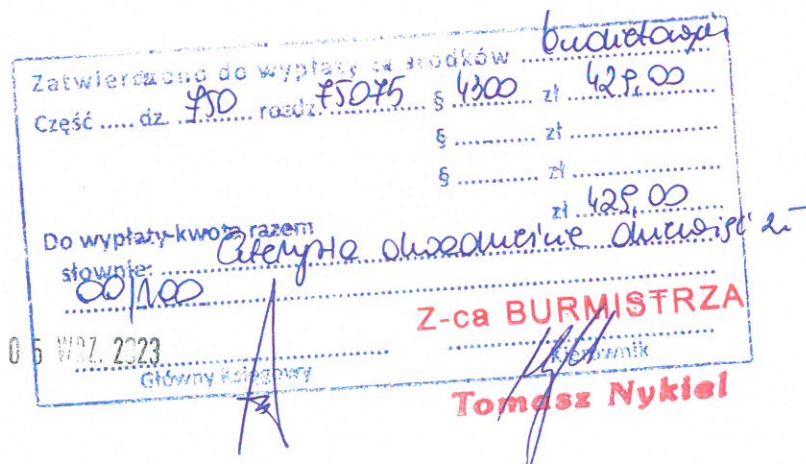 Zatwierdzono do wypłaty ze środków budżetowych
Część ..... dz. 750 rozdz. 75075 § 4300 zł 429,00
§ ............ zł ....................
§ ............ zł ....................
zł 429,00
Do wypłaty-kwota razem
słownie: Czterysta dwadzieścia dziewięć zł
00/100
Z-ca BURMISTRZA
05 WRZ. 2023
Główny Księgowy
Kierownik
Tomasz Nykiel